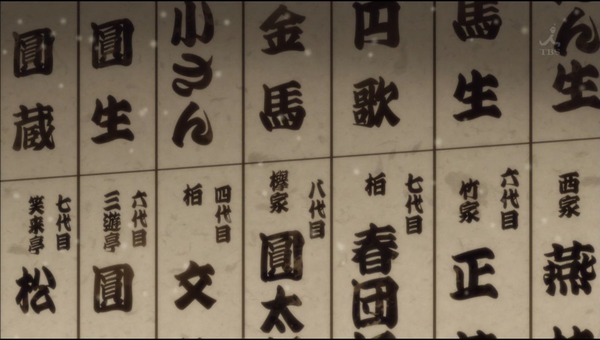 ん生
馬生
円歌
金馬
小さん
圓生
圓蔵
西家
燕
六代目
竹家
正
七代目
柏
春団
八代目
家
圓太
四代目
柏
文
六代目
三遊亭
圓
七代目
笑来亭
松
TBS